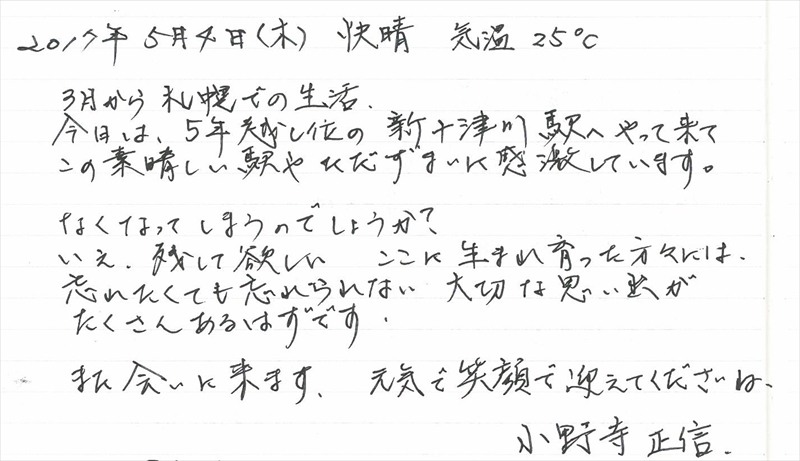 2017年5月4日(木) 快晴 気温 25℃
3月から札幌での生活.
今日は、5年越し位の新十津川駅へやって来て
この素晴しい駅やたたずまいに感激しています。
なくなってしまうのでしょうか?
いえ.残して欲しい ここに生まれ育った方々には、
忘れたくても忘れられない 大切な思い出が
たくさんあるはずです.
また会いに来ます. 元気で笑顔で迎えてくださいね、
小野寺 正信.